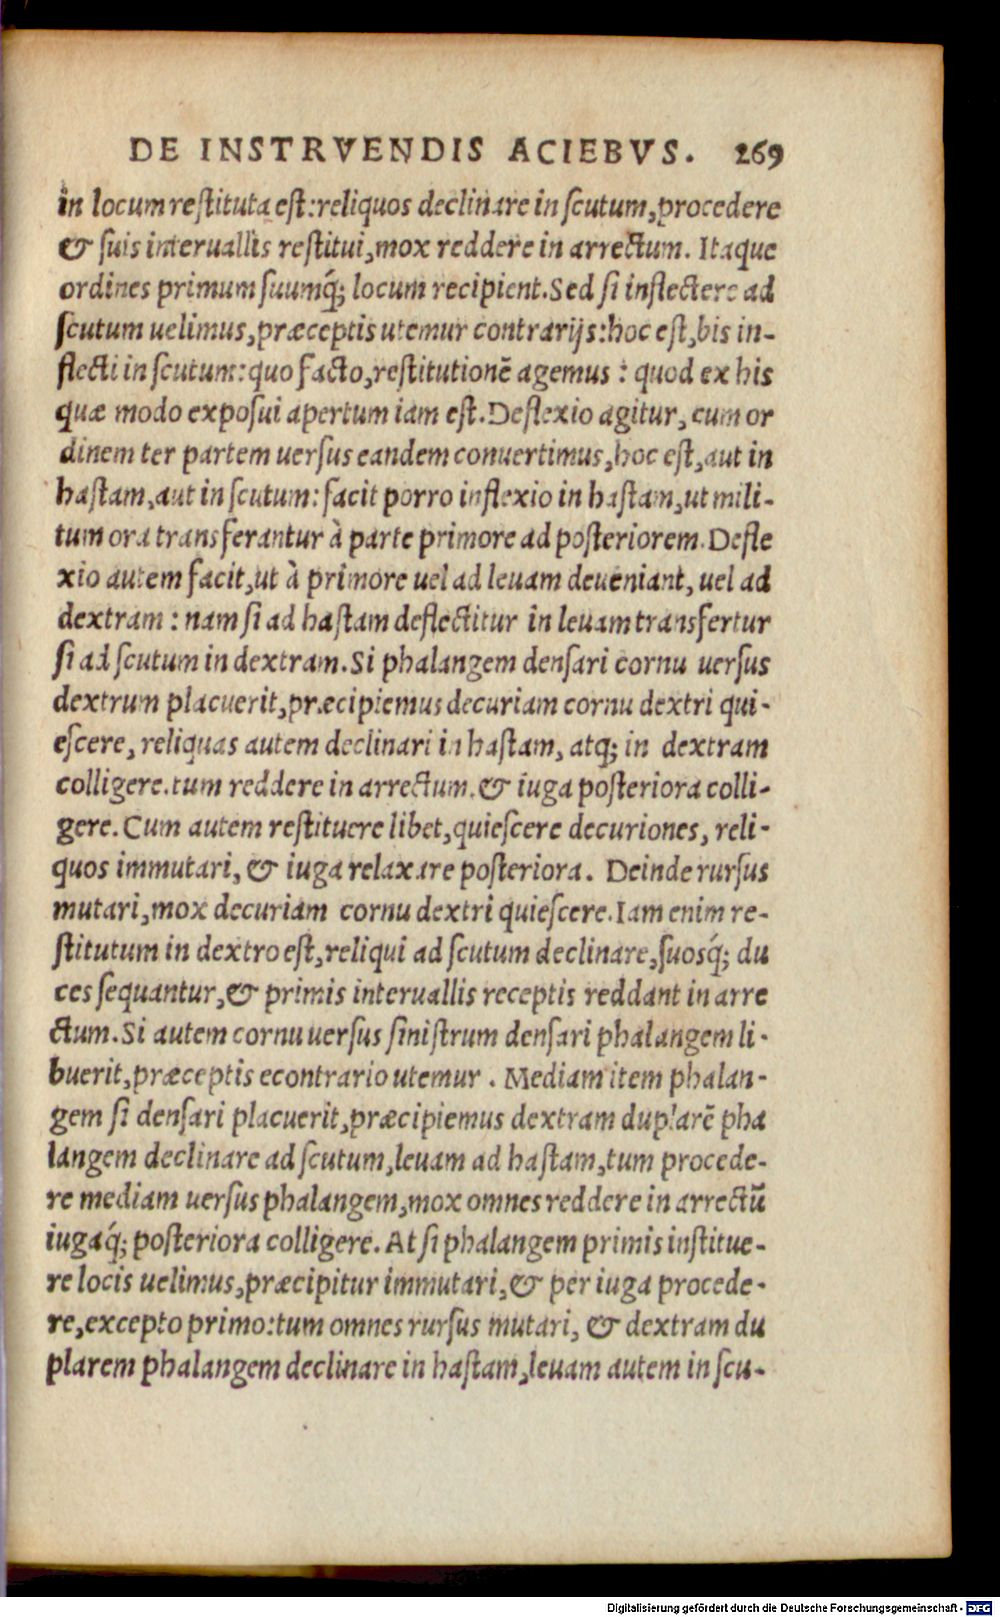 DE INSTRVENDIS ACIEBVS. 269
in locum reſtituta eſt: reliquos declinare in ſcutum, procedere
& ſuis interuallis reſtitui, mox reddere in arrectum. Itaque
ordines primum ſuumq́; locum recipient. Sed ſi inflectere ad
ſcutum uelimus, præceptis utemur contrarijs: hoc eſt, bis in-
flecti in ſcutum: quo facto, reſtitutionē agemus: quod ex his
quæ modo expoſui apertum iam eſt. Deflexio agitur, cum or
dinem ter partem uerſus eandem conuertimus, hoc eſt, aut in
haſtam, aut in ſcutum: facit porro inflexio in haſtam, ut mili-
tum ora transferantur à parte primore ad poſteriorem. Defle
xio autem facit, ut à primore uel ad leuam deueniant, uel ad
dextram: nam ſi ad haſtam deflectitur in leuam transfertur
ſi ad ſcutum in dextram. Si phalangem denſari cornu uerſus
dextrum placuerit, præcipiemus decuriam cornu dextri qui-
eſcere, reliquas autem declinari in haſtam, atq; in dextram
colligere. tum reddere in arrectum. & iuga poſteriora colli-
gere. Cum autem reſtituere libet, quieſcere decuriones, reli-
quos immutari, & iuga relaxare poſteriora. Deinde rurſus
mutari, mox decuriam cornu dextri quieſcere. Iam enim re-
ſtitutum in dextro eſt, reliqui ad ſcutum declinare, ſuosq́; du
ces ſequantur, & primis interuallis receptis reddant in arre
ctum. Si autem cornu uerſus ſiniſtrum denſari phalangem li-
buerit, præceptis econtrario utemur. Mediam item phalan-
gem ſi denſari placuerit, præcipiemus dextram duplarē pha
langem declinare ad ſcutum, leuam ad haſtam, tum procede-
re mediam uerſus phalangem, mox omnes reddere in arrectū
iugaq́; poſteriora colligere. At ſi phalangem primis inſtitue-
re locis uelimus, præcipitur immutari, & per iuga procede-
re, excepto primo: tum omnes rurſus mutari, & dextram du
plarem phalangem declinare in haſtam, leuam autem in ſcu-
Digitalisierung gefördert durch die Deutsche Forschungsgemeinschaft - DFG